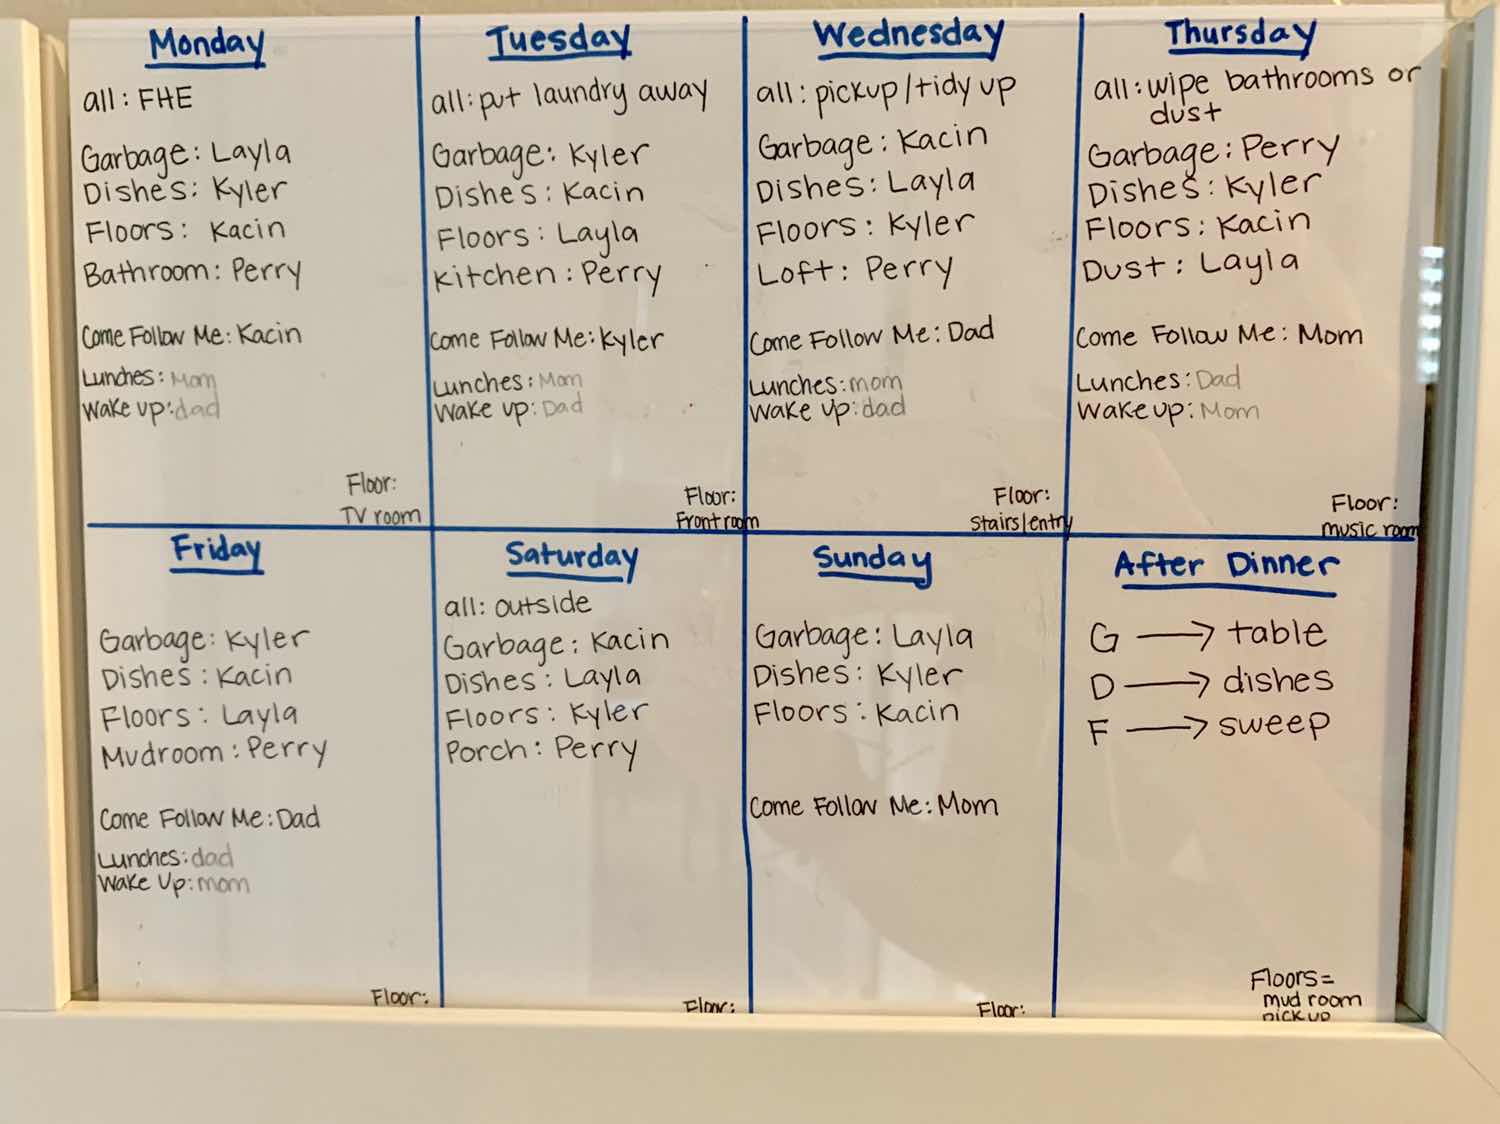 Monday
all: FHE
Garbage: Layla
Dishes: Kyler
Floors: Kacin
Bathroom: Perry
Come Follow Me: Kacin
Lunches: Mom
Wake up: dad
Floor:
TV room
Tuesday
all: put laundry away
Garbage: Kyler
Dishes: Kacin
Floors: Layla
Kitchen: Perry
Come Follow Me: Kyler
Lunches: Mom
Wake up: Dad
Floor:
Front room
Wednesday
all: pickup/tidy up
Garbage: Kacin
Dishes: Layla
Floors: Kyler
Loft: Perry
Come Follow Me: Dad
Lunches: mom
Wake up: dad
Floor:
Stairs/entry
Thursday
all: wipe bathrooms or
dust
Garbage: Perry
Dishes: Kyler
Floors: Kacin
Dust: Layla
Come Follow Me: Mom
Lunches: Dad
Wake up: Mom
Floor:
music room
Friday
Garbage: Kyler
Dishes: Kacin
Floors: Layla
Mudroom: Perry
Come Follow Me: Dad
Lunches: dad
Wake Up: mom
Floor:
Saturday
all: outside
Garbage: Kacin
Dishes: Layla
Floors: Kyler
Porch: Perry
Floor:
Sunday
Garbage: Layla
Dishes: Kyler
Floors: Kacin
Come Follow Me: Mom
Floor:
After Dinner
G → table
D → dishes
F → sweep
Floors=
mud room
pickup